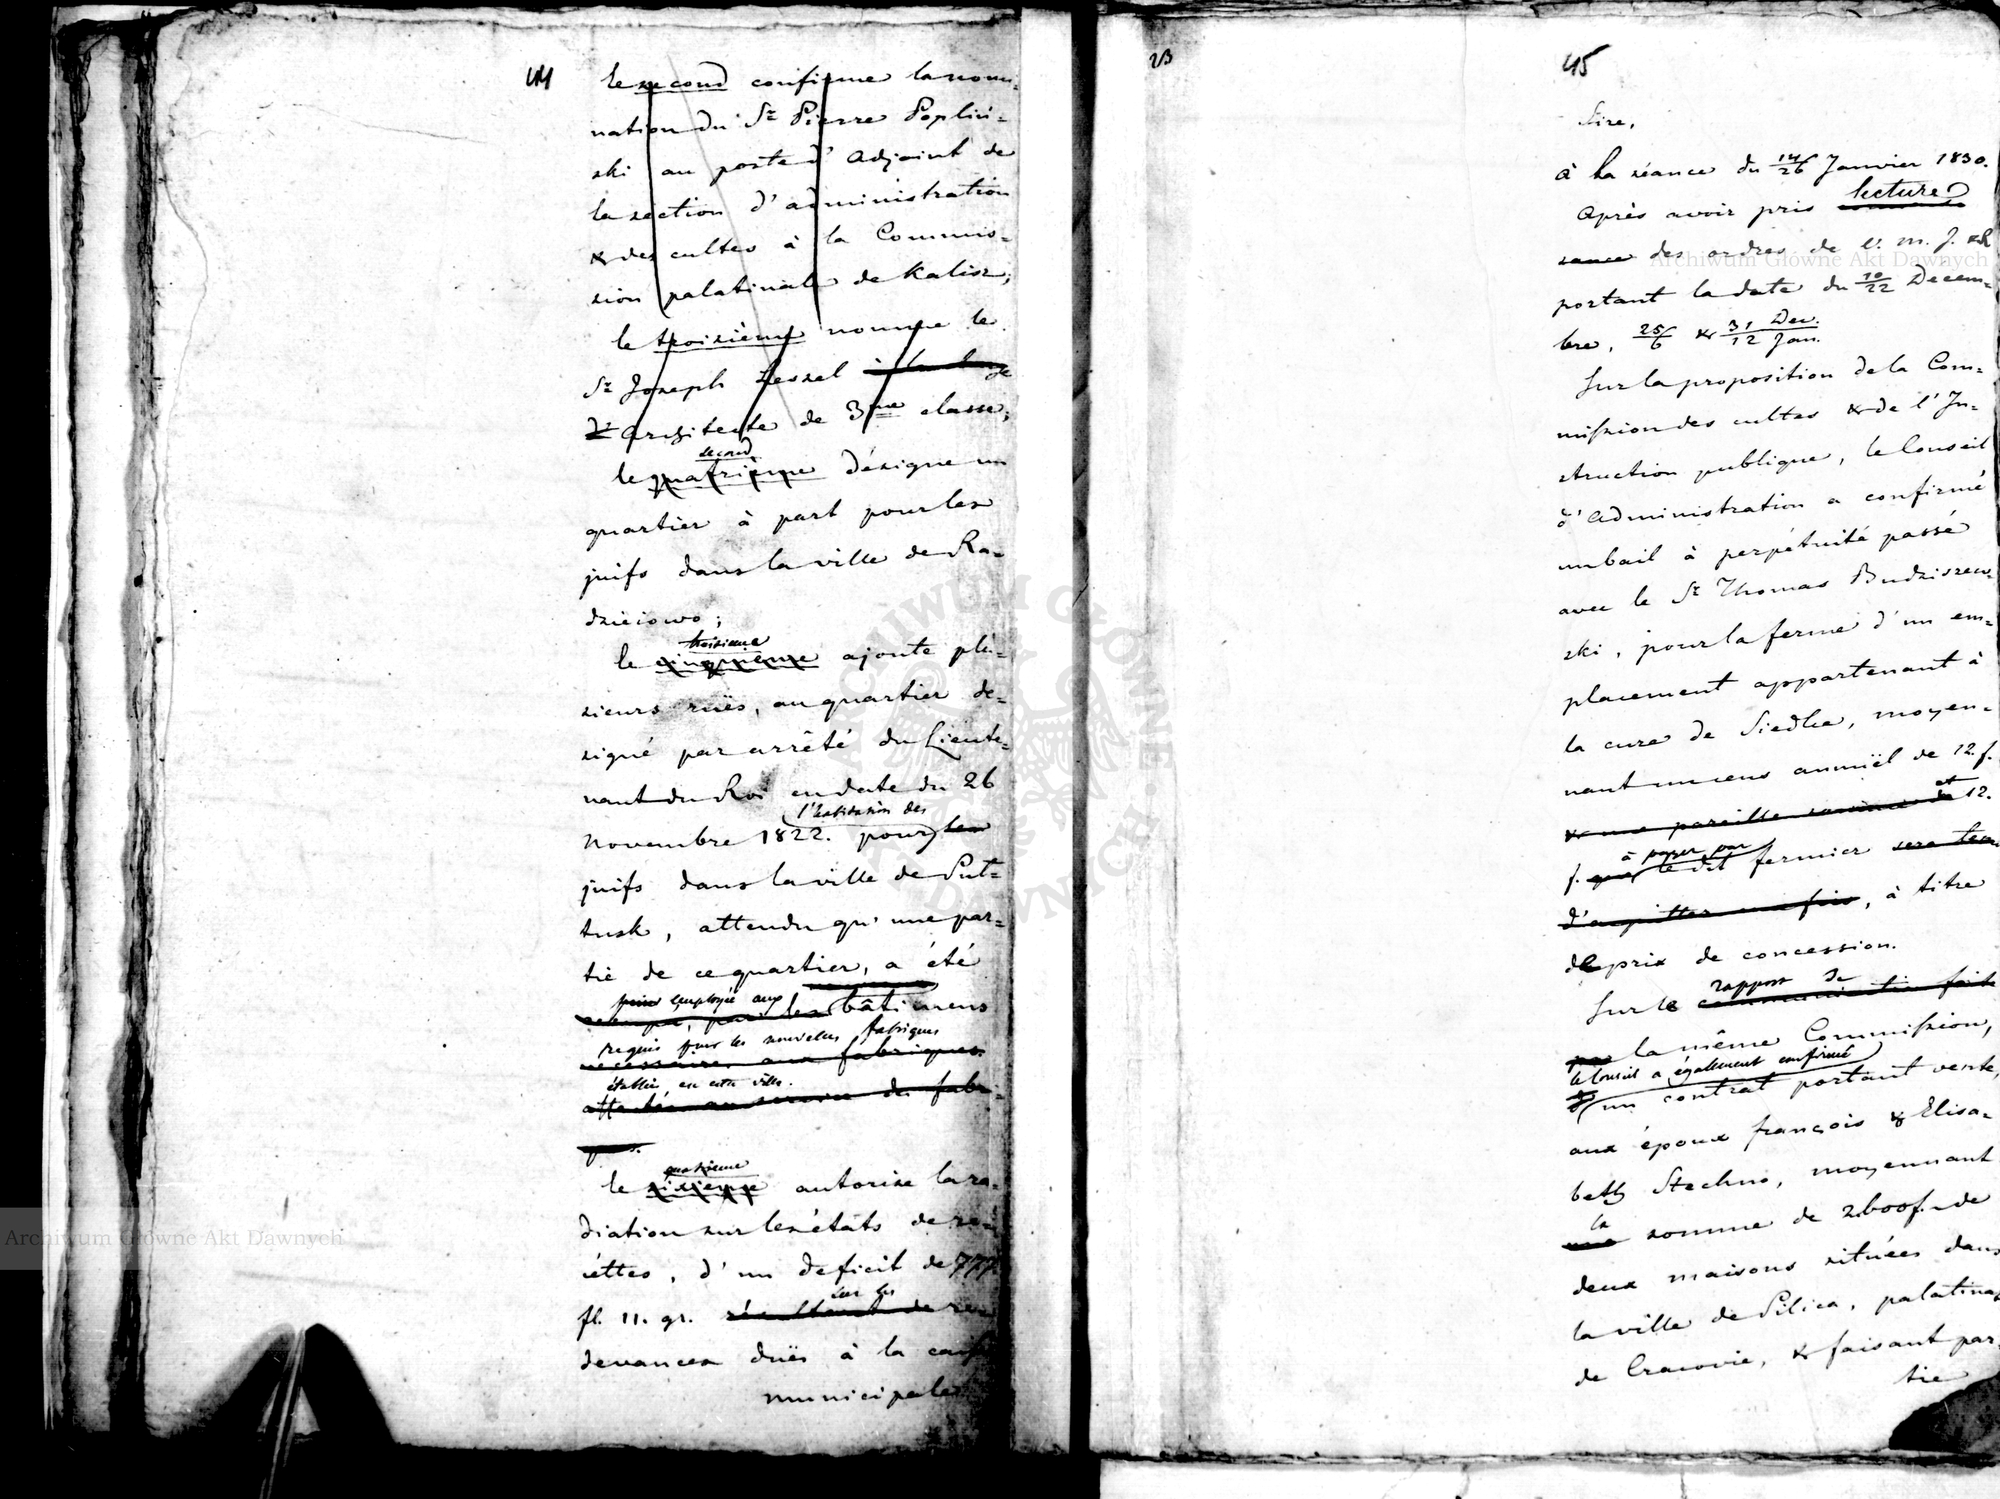 44
le second confirme la nomi=
nation du Sr Pierre Popliń=
ski au poste d'adjoint de
la section d'administration
& des cultes à la Commis=
sion palatinale de Kalisz;
le troisième nomme le
Sr Joseph Lessel
d'architecte de 3me classe;
second
le quatrième désigne un
quartier à part pour les
juifs dans la ville de Ra=
dziéiowo;
troisieme
le cinquième ajoute plu=
sieurs rües, au quartier dé=
signé par arrêté du Lieute=
nant du Roi en date du 26
l'habitation des
Novembre 1822. pour les
juifs dans la ville de Puł=
tusk, attendu qu'une par=
tie de ce quartier, a été
employée aux
occupé, par les bâtimens
requis pour les nouvelles fabriques
nécessaires aux fabriques
établies en cette ville.
affectés au service des fabri=
ques.
quatrieme
le sixième autorise la ra=
diation sur les états de re=
cettes, d'un deficit de 777
fl. 11. gr. sur les
résultant de re=
devances dües à la caisse
municipale
23
45
Sire,
à la séance du 14/26 Janvier 1830.
lecture
Après avoir pris
sance des ordres de V. M. J. & R
portant la date du 10/22 Decem=
bre, 25/6 & 31 Dec./12 Jan.
Sur la proposition de la Com=
mission des cultes & de l'In=
struction publique, le Conseil
d'administration a confirmé
un bail à perpétuité passé
avec le Sr Thomas Budziszew=
ski, pour la ferme d'un em=
placement appartenant à
la cure de Siedlce, moyen=
nant un cens annuël de 12 f.
et
& une pareille somme de 12.
à payer par
f. que le dit fermier sera tenu
d'acquitter une fois, à titre
de prix de concession.
rapport de
Sur la communication faite
par la même Commission,
le Conseil a également confirmé
un contrat portant vente,
aux époux françois & Elisa=
beth Stechno, moyennant
la
une somme de 2600 f. de
deux maisons situées dans
la ville de Pilica, palatinat
de Cracovie, & faisant par=
tie
Archiwum Główne Akt Dawnych
Archiwum Główne Akt Dawnych
ARCHIWUM GŁÓWNE AKT DAWNYCH